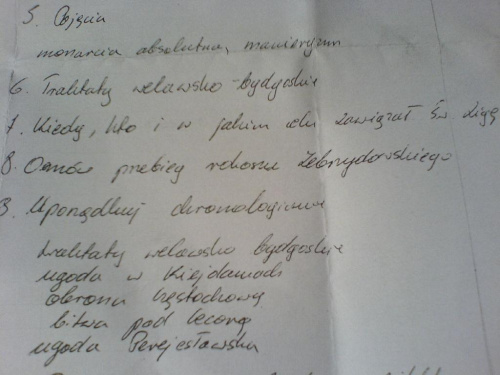 5. Pojęcia
monarcia absolutna, manieryzm
6. Traktaty welawsko-bydgoskie
7. Kiedy, kto i w jakim celu zawiązał Św Ligę
8. Omów przebieg rokoszu Zebrzydowskiego
9. Uporządkuj chronologicznie
traktaty welawsko bydgoskie
ugoda w Kiejdanach
obrona Częstochowy
bitwa pod Cecorą
ugoda Perejesławska